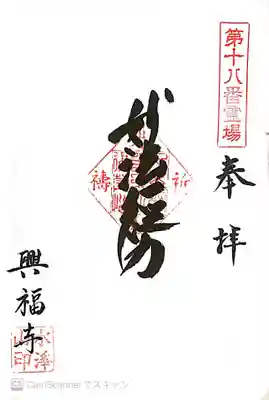 第十八番霊場
奉拝
祈禱
妙法経力
興福寺
CamScanner でスキャン